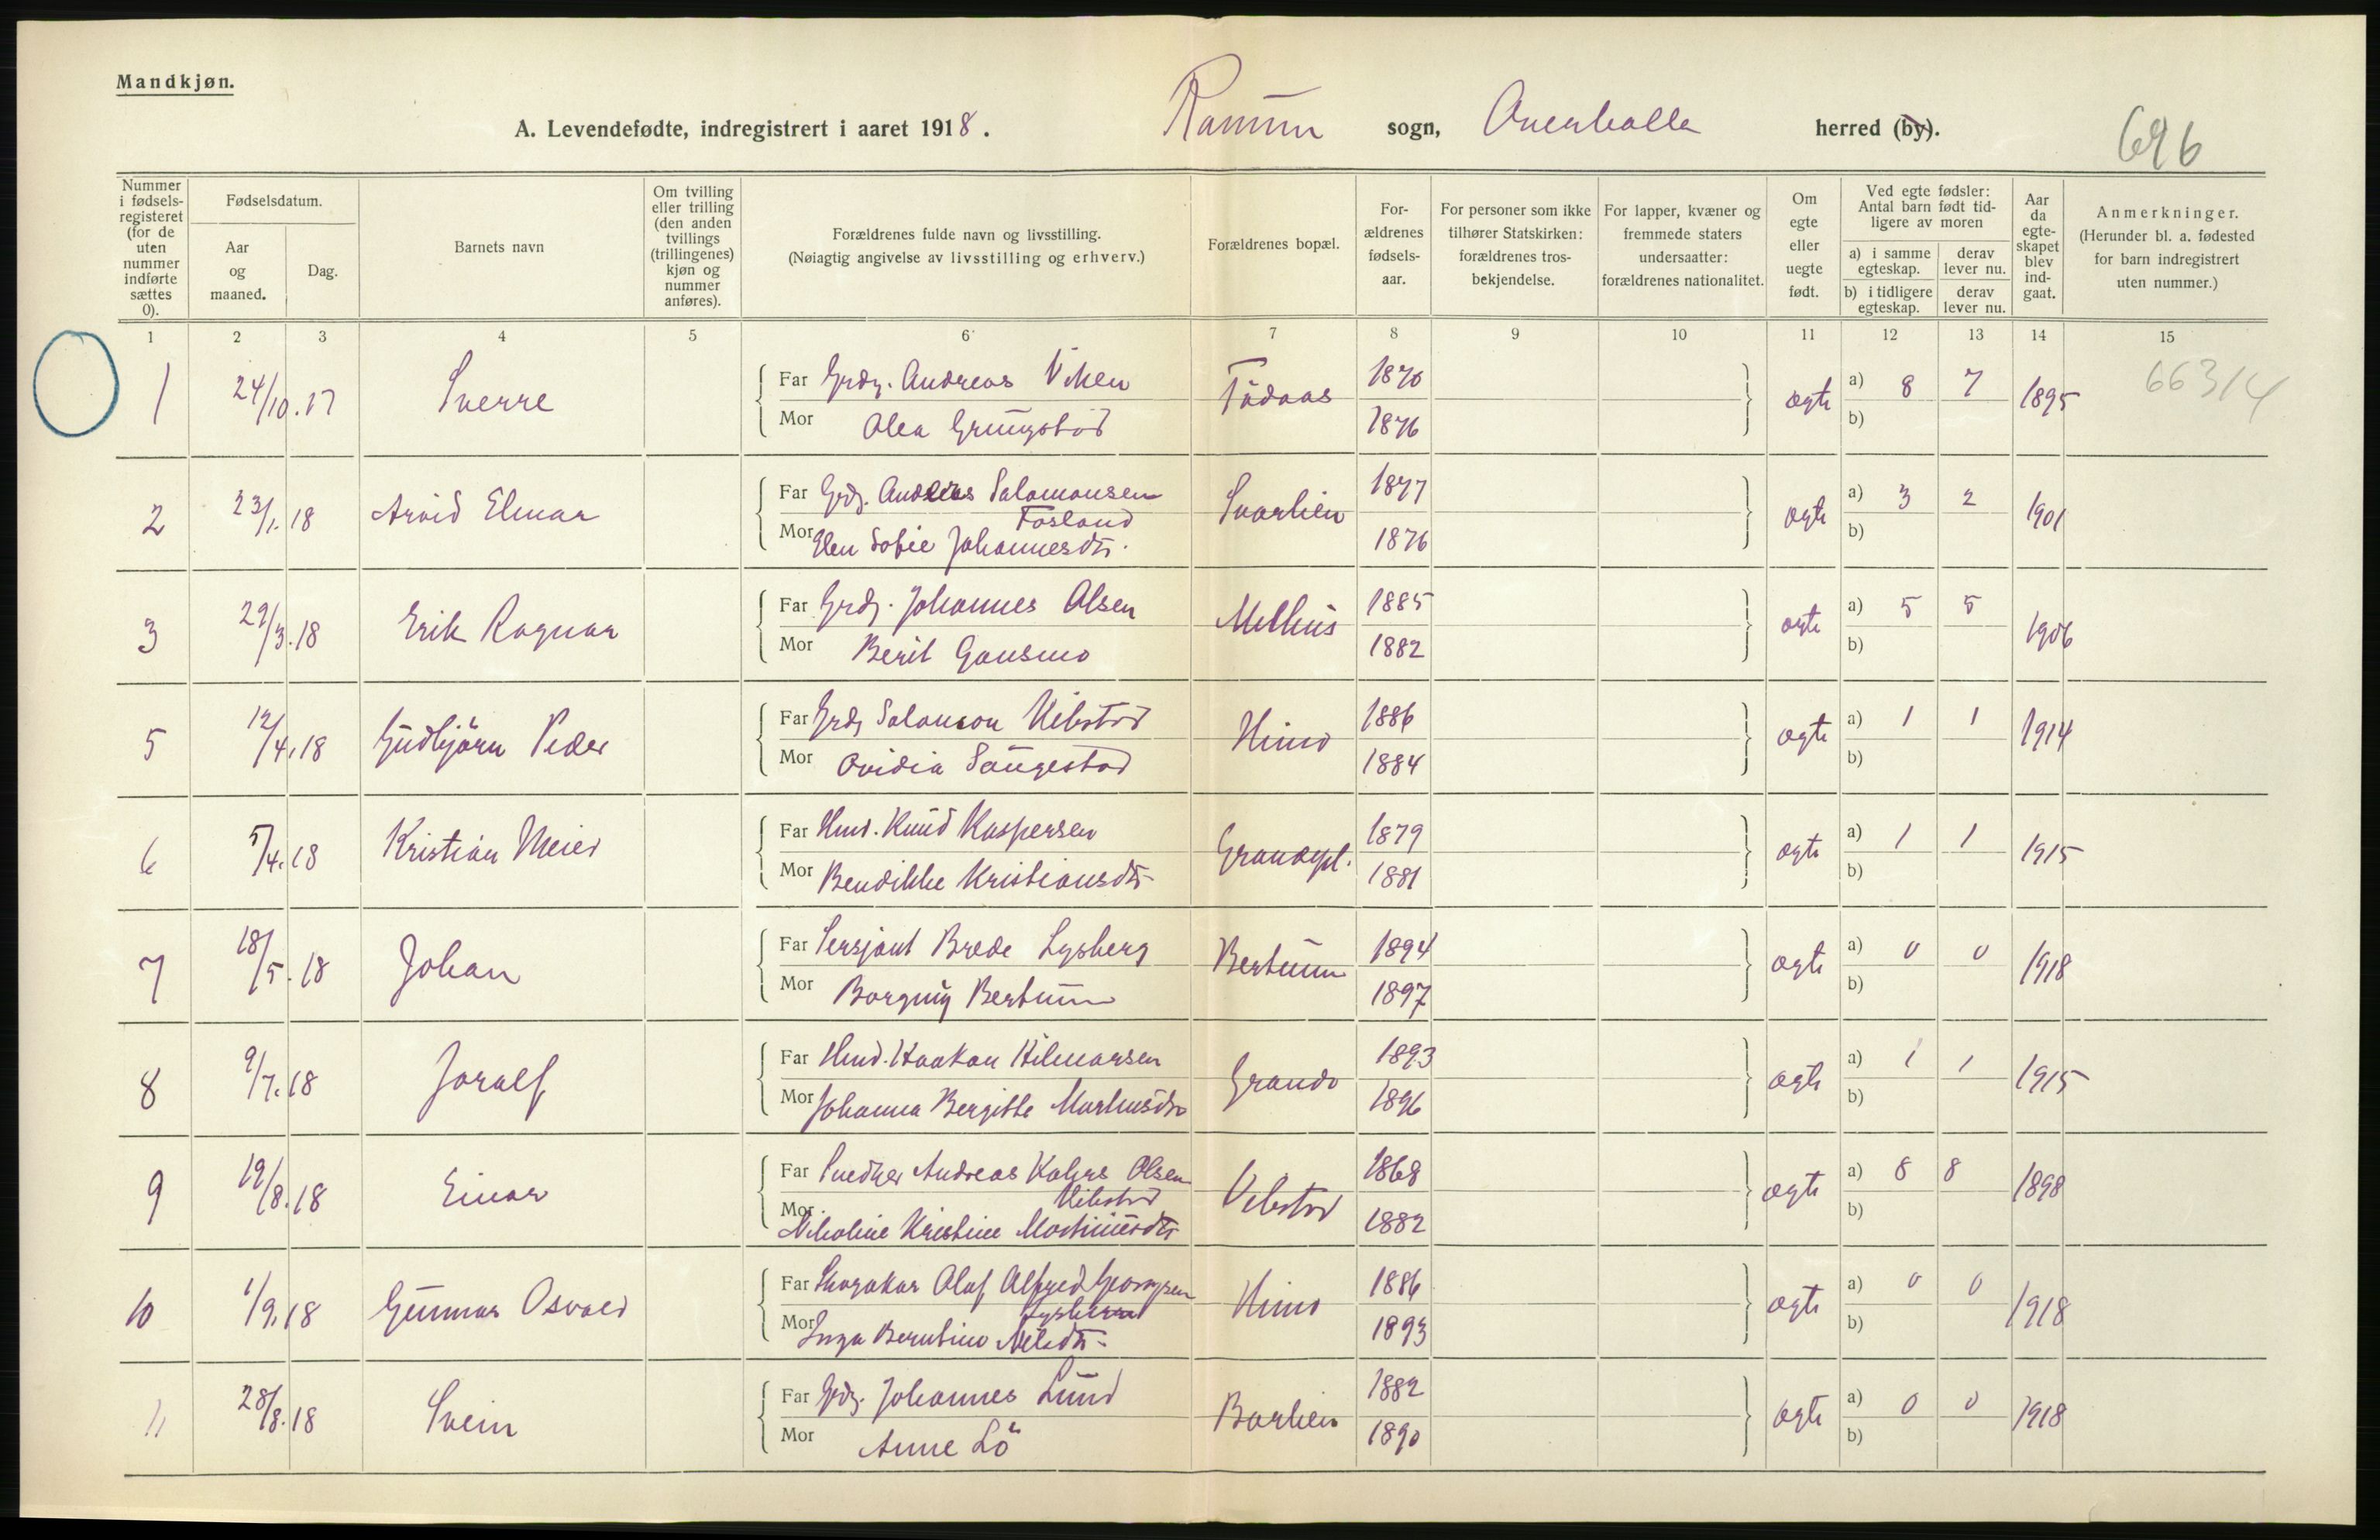 Mandkjøn.
A. Levendefødte, indregistrert i aaret 1918. Ranum sogn, Overhalla herred (by).
696
Nummer i fødsels-registeret (for de uten nummer indførte sættes 0).
Fødselsdatum.
Aar og maaned.
Dag.
Barnets navn
Om tvilling eller trilling (den anden tvillings (trillingenes) kjøn og nummer anføres).
Forældrenes fulde navn og livsstilling.
(Nøiagtig angivelse av livsstilling og erhverv.)
Forældrenes bopæl.
For-ældrenes fødsels-aar.
For personer som ikke tilhører Statskirken: forældrenes tros-bekjendelse.
For lapper, kvæner og fremmede staters undersaatter: forældrenes nationalitet.
Om egte eller uegte født.
Ved egte fødsler: Antal barn født tid-ligere av moren
a) i samme egteskap.
derav lever nu.
b) i tidligere egteskap.
derav lever nu.
Aar da egte-skapet blev ind-gaat.
Anmerkninger.
(Herunder bl. a. fødested for barn indregistrert uten nummer.)
1 2 3 4 5 6 7 8 9 10 11 12 13 14 15
1 24/10.17 Sverre Far Grdr. Andreas Viken 1870 ægte a) 8 7 1895 66314
Mor Olea Gryngstad 1876 b)
2 23/1.18 Arvid Elmar Far Grdr. Andreas Salomonsen Fosland Svarlien 1877 ægte a) 3 2 1901
Mor Elen Sofie Johannesdtr. 1876 b)
3 29/3.18 Erik Ragnar Far Grdr. Johannes Olsen Melhus 1885 ægte a) 5 5 1906
Mor Berit Gansmo 1882 b)
5 12/4.18 Gudbjörn Peder Far Grdr Salomon Vibstad Himo 1886 ægte a) 1 1 1914
Mor Ovidia Saugestad 1884 b)
6 5/4.18 Kristian Meier Far Hmd. Knud Kaspersen 1879 ægte a) 1 1 1915
Mor Bendikke Kristiansdtr 1881 b)
7 18/5.18 Johan Far Sersjant Brede Lysberg Bertnum 1894 ægte a) 0 0 1918
Mor Borgny Bertnum 1897 b)
8 9/7.18 Joralf Far Hmd. Haakon Hilmarsen Grande 1893 ægte a) 1 1 1915
Mor Johanna Bergitte Markusdtr 1896 b)
9 19/8.18 Einar Far Snedker Andreas Olsen Vibstad Vibstad 1868 ægte a) 8 8 1898
Mor Nikoline Kristine 1882 b)
10 1/9.18 Gunnar Osvald Far Skomaker Olaf Alfred Georgsen Himo 1886 ægte a) 0 0 1918
Mor Inga Berntine Nilsdtr. 1893 b)
11 28/8.18 Svein Far Grdr. Johannes Lund Barlien 1882 ægte a) 0 0 1918
Mor Anne Lö 1890 b)